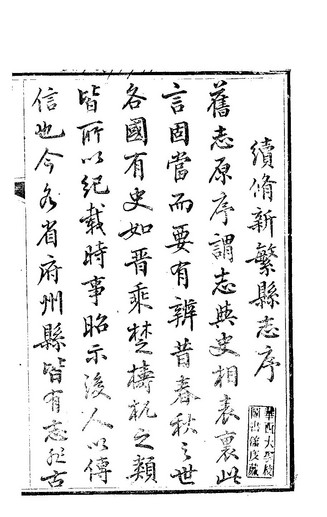 續脩新繁縣志序
舊志原序謂志與史相表裏此
言固當而要有辨昔春秋之世
各國有史如晋乘楚檮杌之類
皆所以紀載時事昭示後人以傳
信也今各省府州縣皆有志於古
華西大學校
圖書館庋藏